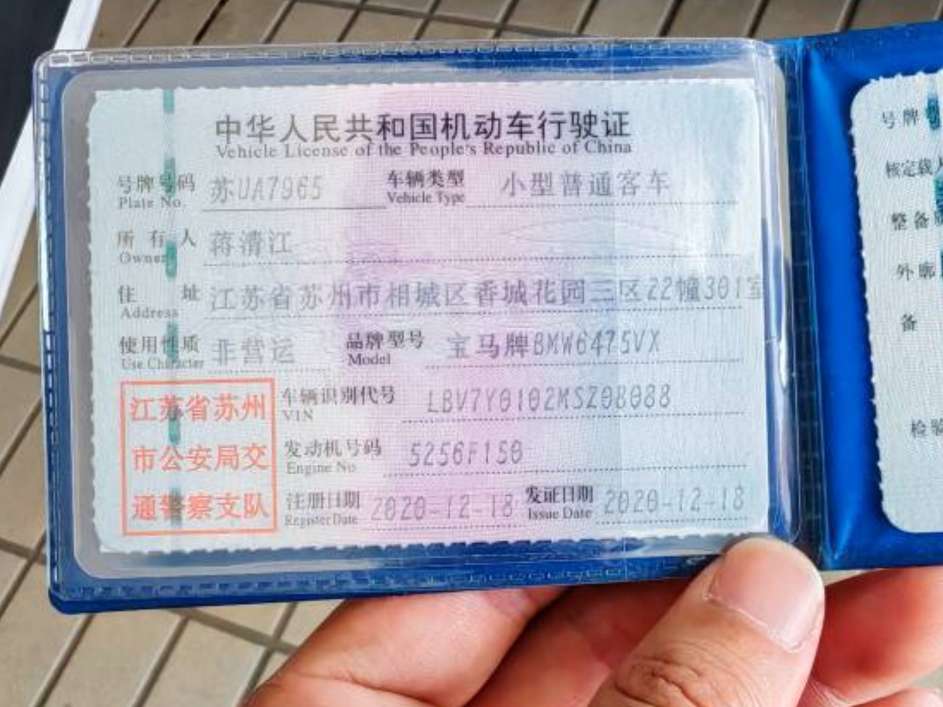 中华人民共和国机动车行驶证
Vehicle License of the People's Republic of China
号牌号码 苏UA7965 车辆类型 小型普通客车
Plate No. Vehicle Type
所有人 蒋清江
Owner
住址 江苏省苏州市相城区香城花园三区22幢301室
Address
使用性质 非营运 品牌型号 宝马牌BMW6475VX
Use Character Model
江苏省苏州
市公安局交
通警察支队
车辆识别代号 LBV7Y0102MSZ08088
VIN
发动机号码 5256F150
Engine No
注册日期 2020-12-18 发证日期 2020-12-18
Register Date Issue Date
号牌
核定载
整备
外廓
备
检验